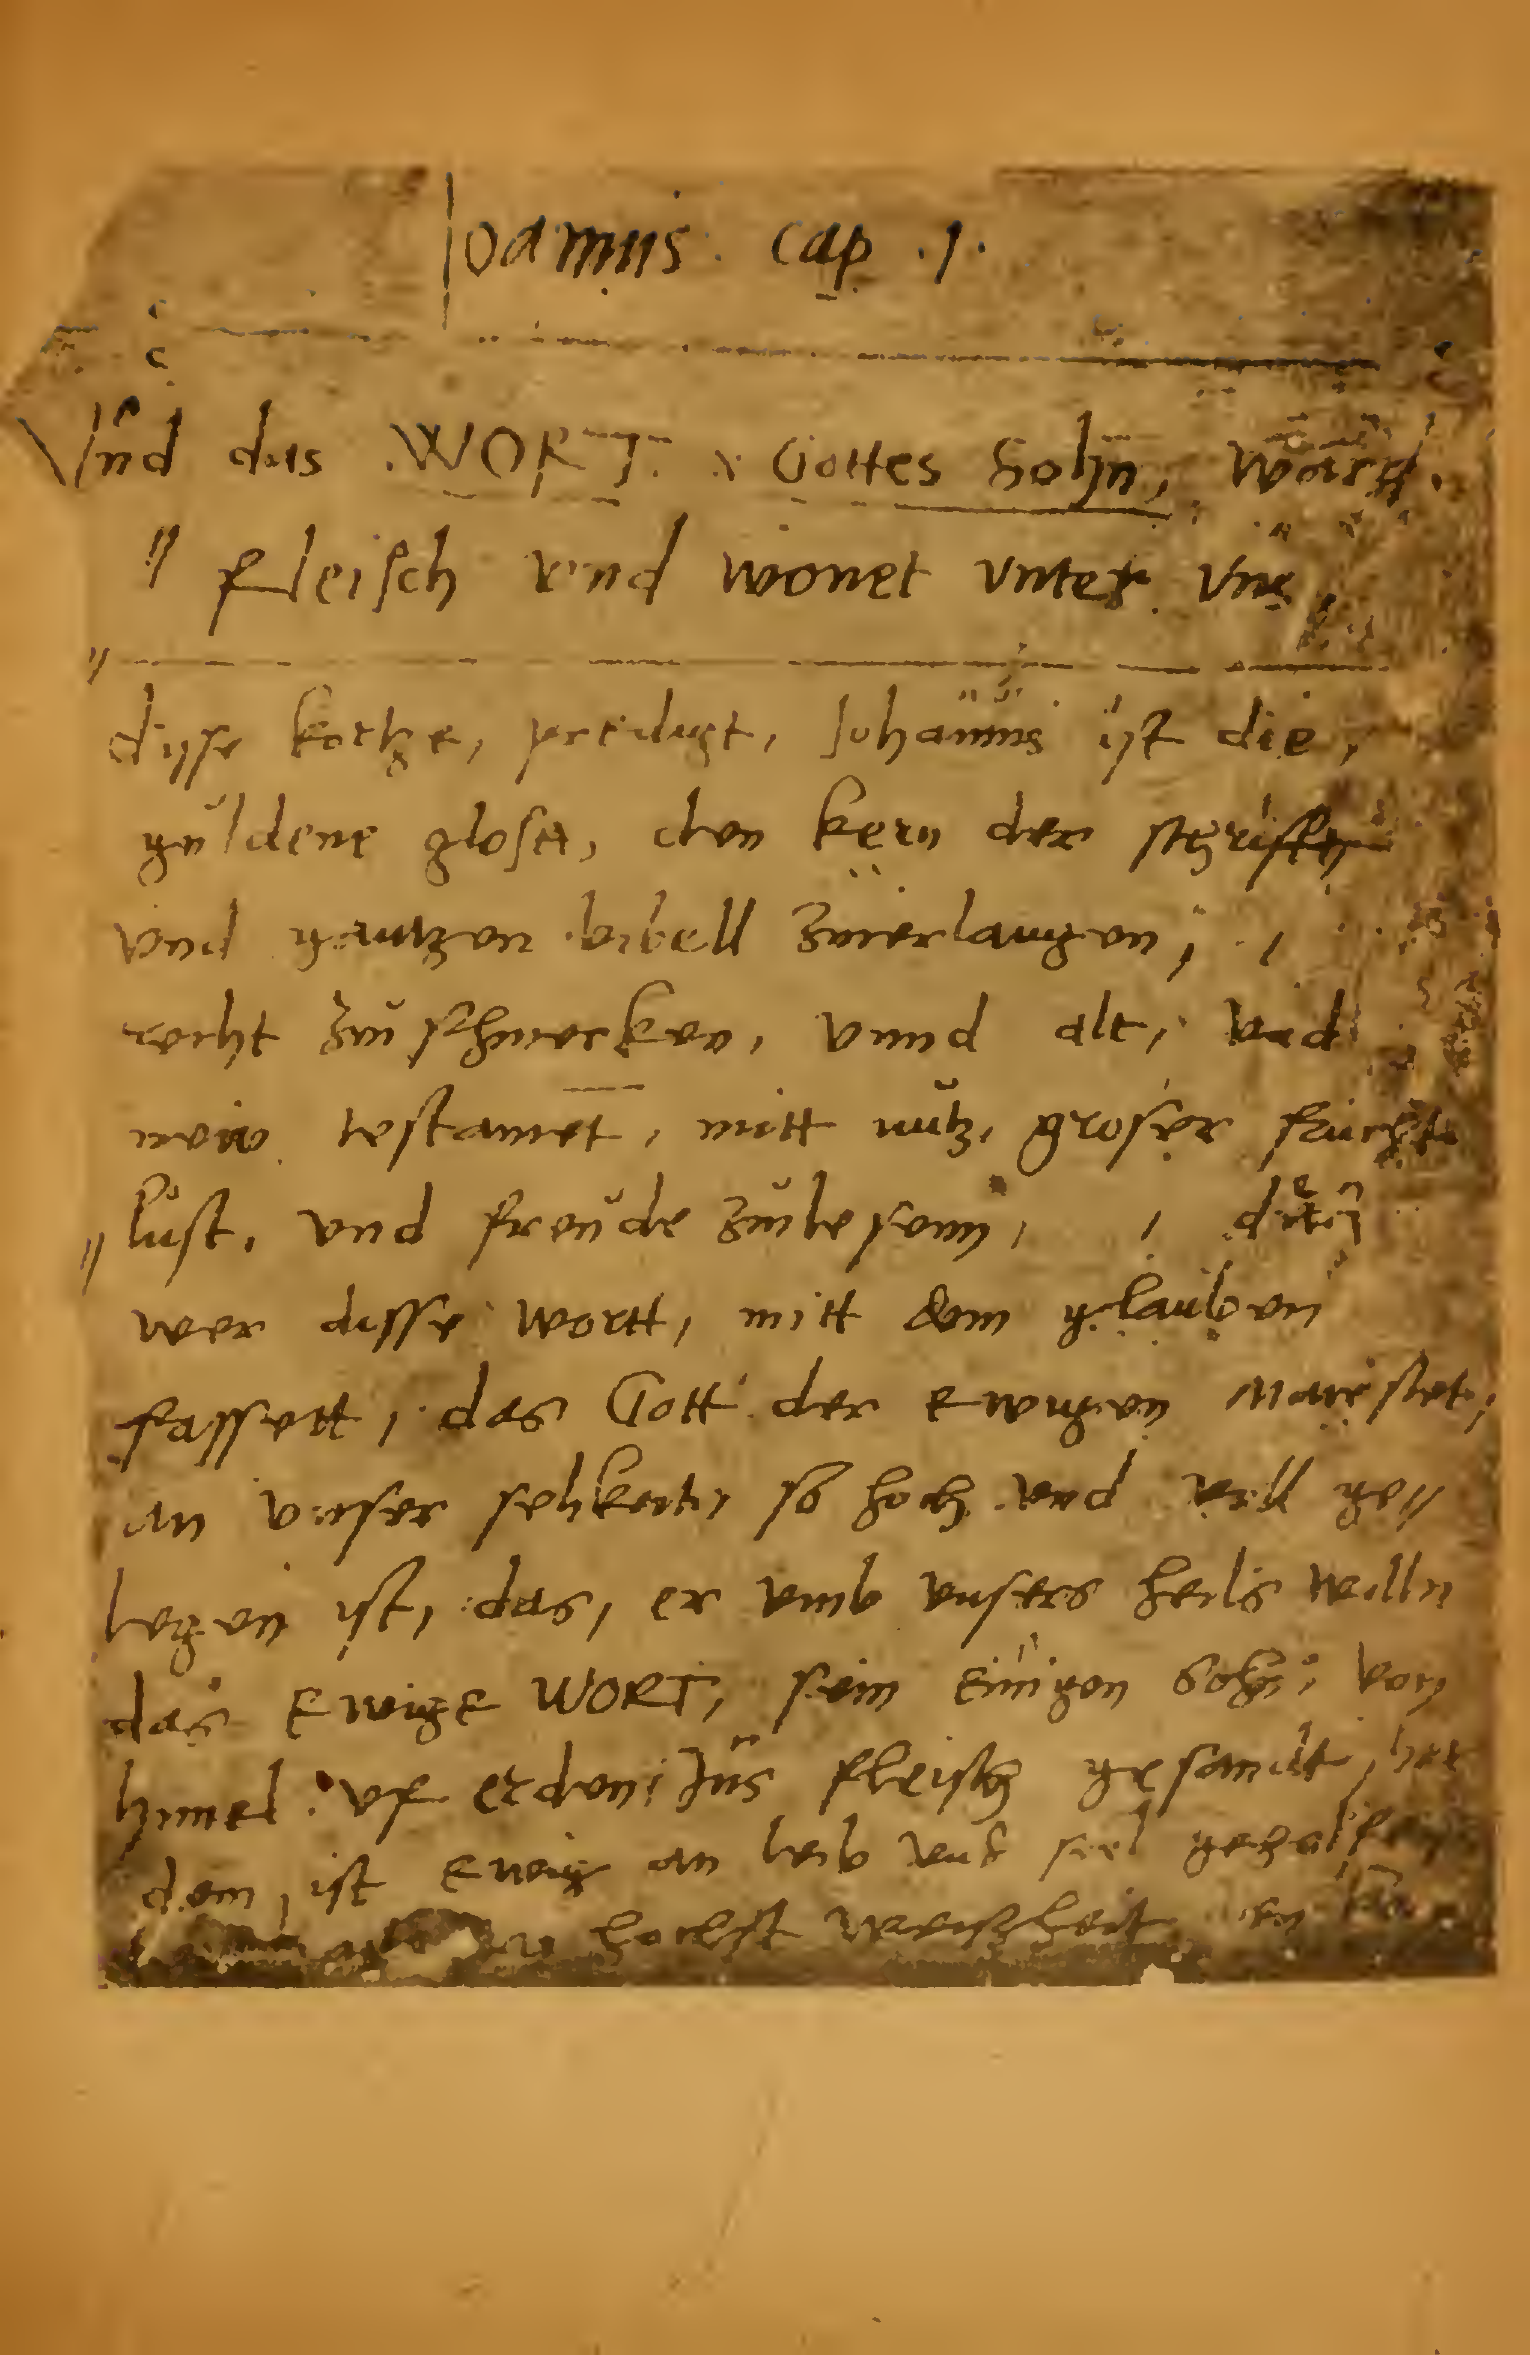 Joannis cap .1.
Vnd das WORT Gottes Sohn, Wartt.
fleisch vnd wonet vnter vns
disse kortze, predigt, Johannis ist die,
guldene glosa, den kern der schrifft
vnd gantzen bibell zuerlangen,
recht zu schmecken, vnnd alt, vnd
new testamēt, mitt nutz, groser frucht
lust, vnd freude zu lesenn,
wer disse wortt, mitt dem glauben
fassett, das Gott der ewigen Maiestet,
an vnser selikeit, so hoch vnd vill ge//
legen ist, das, er vmb vnsers heils willn
das Ewige WORT, sein einigen Sohn, von
himel vf erden, Ins fleisch gesandt, hat
dem, ist Ewig an leib vnd seel geholf
hochst weiszheit